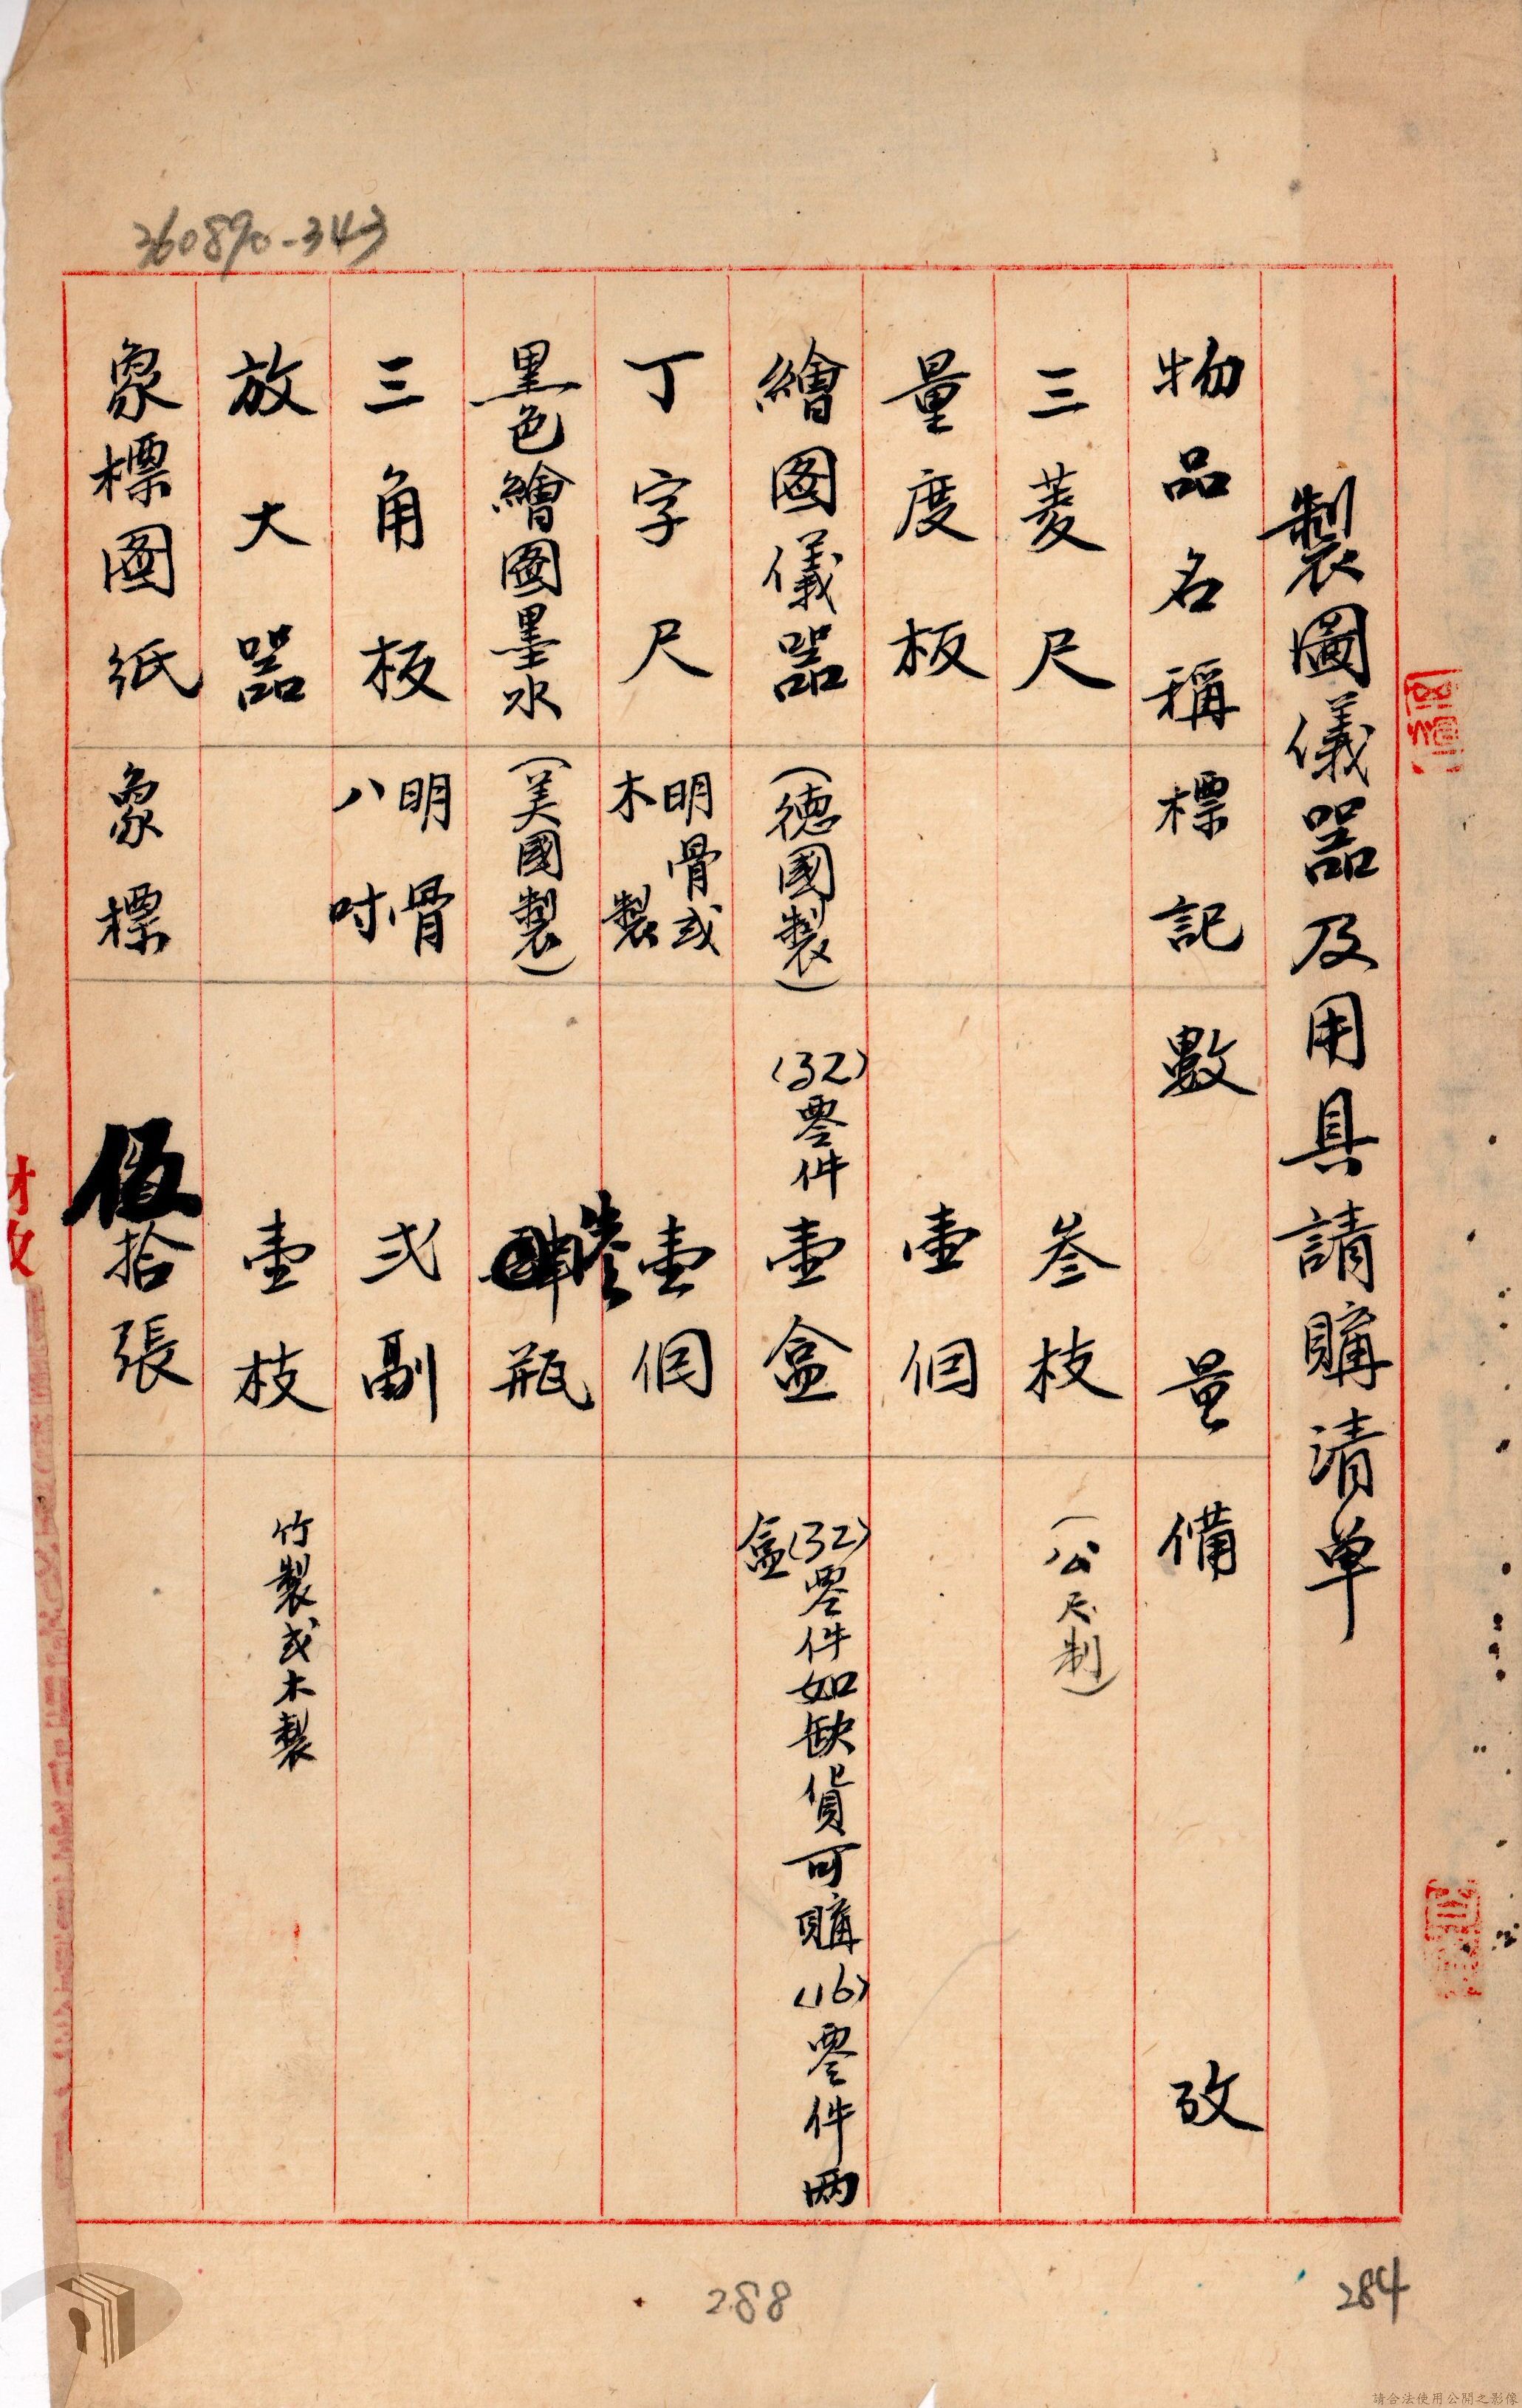 製圖儀器及用具請購清单
物品名稱 標記 數量 備攷
三菱尺 叁枝 （公尺制）
量度板 壹個
繪图儀器 （德國製） (32)零件壹盒 (32)零件如缺貨可購(16)零件两
盒
丁字尺 明骨或
木製 壹個
黑色繪图墨水 （美國製） 叁瓶
三角板 明骨
八吋 弍副
放大器 壹枝 竹製或木製
象標图紙 象標 伍拾張
360890-343
288
284
財政
請合法使用公開之影像